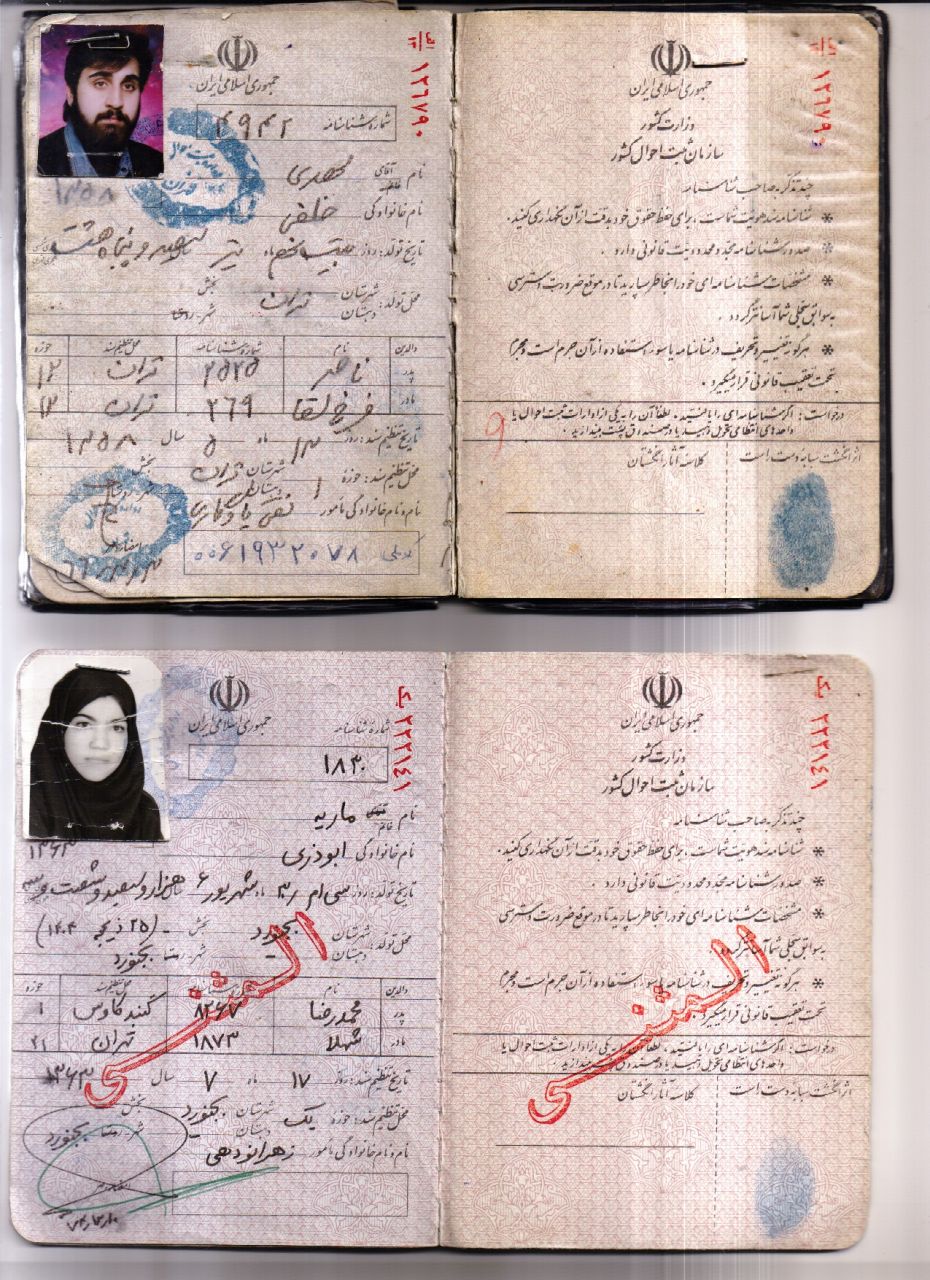 جمهوری اسلامی ایران
شماره شناسنامه ۴۹۴۲
نام آقای مهدی
نام خانوادگی خلفی
تاریخ تولد: روز بیست و پنجم ماه تیر
محل تولد: شهرستان تهران بخش
دهستان
والدین نام شماره شناسنامه محل تنظیم سند حوزه
پدر ناصر ۲۵۲۵ تهران ۱۲
مادر فرخ لقا ۲۶۹ تهران ۱۲
تاریخ تنظیم سند: روز ۱۳ ماه ۵ سال ۱۳۵۸
محل تنظیم سند: حوزه ۱ شهرستان تهران بخش
نام و نام خانوادگی مأمور
کد ملی ۰۰۶۱۹۳۲۰۷۸
۱۲۶۷۹۰
جمهوری اسلامی ایران
وزارت کشور
سازمان ثبت احوال کشور
چند تذکر به صاحب شناسنامه
* شناسنامه سند هویت شماست، برای حفظ حقوق خود بدقت از آن نگهداری کنید.
* صدور شناسنامه مجدد محدودیت قانونی دارد.
* مشخصات شناسنامه ای خود را بخاطر بسپارید تا در موقع ضرورت دسترسی
به سوابق سجلی شما آسانتر گردد.
* هرگونه تغییر و تحریف در شناسنامه یا سوء استفاده از آن جرم است و مجرم
تحت تعقیب قانونی قرار میگیرد.
درخواست: اگر شناسنامه ای را یافتید، لطفاً آن را به یکی از ادارات ثبت احوال یا
واحدهای انتظامی تحویل دهید یا در صندوق پست بیندازید.
اثر انگشت سبابه دست راست است کلاسه آثار انگشتان
۱۲۶۷۹۰
۹
جمهوری اسلامی ایران
شماره شناسنامه
۱۸۳۰
نام خانم ماریه
نام خانوادگی ابوذری
تاریخ تولد: روز سی ام ۳۰ ماه شهریور ۶ هزار و سیصد و شصت و سه
۱۳۶۳
محل تولد: شهرستان بجنورد بخش - (۲۵ ذیحجه ۱۴۰۴)
دهستان شهر - بجنورد
والدین نام شماره شناسنامه محل تنظیم سند حوزه
پدر محمدرضا ۸۲۶۷ گنبد کاوس ۱
مادر شهلا ۱۸۷۳ تهران ۲۱
تاریخ تنظیم سند: روز ۱۷ ماه ۷ سال ۱۳۶۳
محل تنظیم سند: حوزه یک شهرستان بجنورد بخش
دهستان شهر - بجنورد
نام و نام خانوادگی مأمور
المثنی
۲۲۲۱۴۱
جمهوری اسلامی ایران
وزارت کشور
سازمان ثبت احوال کشور
چند تذکر به صاحب شناسنامه
* شناسنامه سند هویت شماست، برای حفظ حقوق خود بدقت از آن نگهداری کنید.
* صدور شناسنامه مجدد محدودیت قانونی دارد.
* مشخصات شناسنامه ای خود را بخاطر بسپارید تا در موقع ضرورت دسترسی
به سوابق سجلی شما آسانتر گردد.
* هرگونه تغییر و تحریف در شناسنامه یا سوء استفاده از آن جرم است و مجرم
تحت تعقیب قانونی قرار میگیرد.
درخواست: اگر شناسنامه ای را یافتید، لطفاً آن را به یکی از ادارات ثبت احوال یا
واحدهای انتظامی تحویل دهید یا در صندوق پست بیندازید
اثر انگشت سبابه دست راست است کلاسه آثار انگشتان
المثنی
۲۲۲۱۴۱